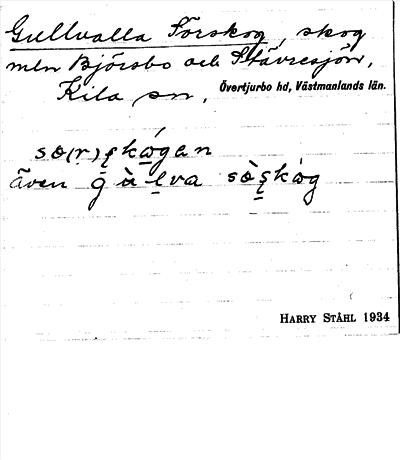 Gullvalla Sörskog, skog
mln Björsbo och Stävresjön,
Kila sn, Övertjurbo hd, Västmanlands län.
sö(r)skógan
även gùlva sö̀skòg
HARRY STÅHL 1934